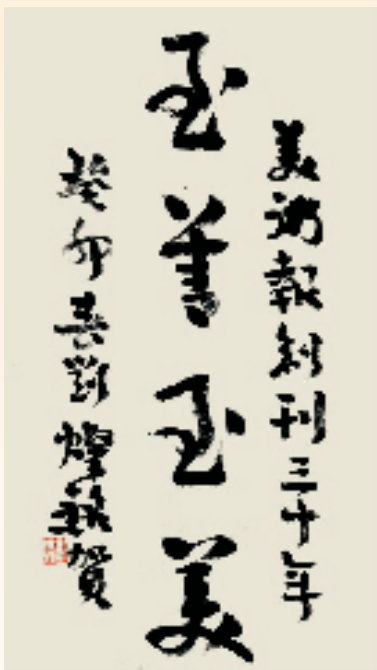 美術報創刊三十年
至善至美
癸卯春劉燦銘賀